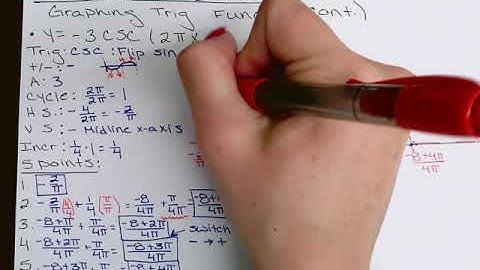 Graphing Trig Func ont.)
• y = -3 csc (2πx
Trig: CSC : Flip sin
+/- : -
A: 3
Cycle: 2π/2π = 1
H S.: -4/2π = -2/π
V S: - Midline x-axis
Incr: 1/4 · 1 = 1/4
5 points:
1. -2/π
2. -2/π (4/4) + 1/4 (π/π) = -8/4π + π/4π = -8+
3. -8+π/4π + π/4π = -8+2π/4π switch
4. -8+2π/4π + π/4π = -8+3π/4π - → +
5. -8+3π + π -8+4π
-8+4π/4π